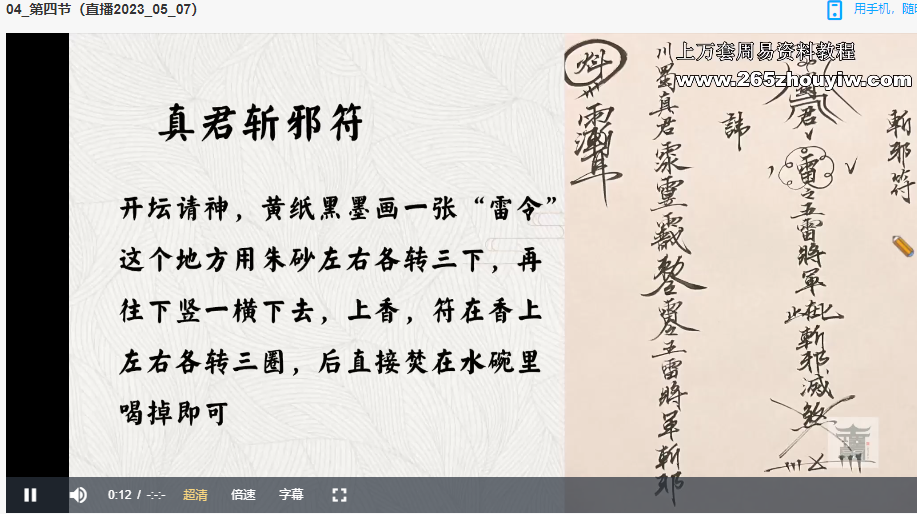 04_第四节（直播2023_05_07）
用手机，随时
上万套周易资料教程
www.265zhouyiw.com
真君斩邪符
开坛请神，黄纸黑墨画一张“雷令”
这个地方用朱砂左右各转三下，再
往下竖一横下去，上香，符在香上
左右各转三圈，后直接焚在水碗里
喝掉即可
斬邪符
君
雷之五雷將軍在此斬邪滅煞
諱
川蜀真君
五雷將軍斬邪
0:12 / -:-:-
超清
倍速
字幕